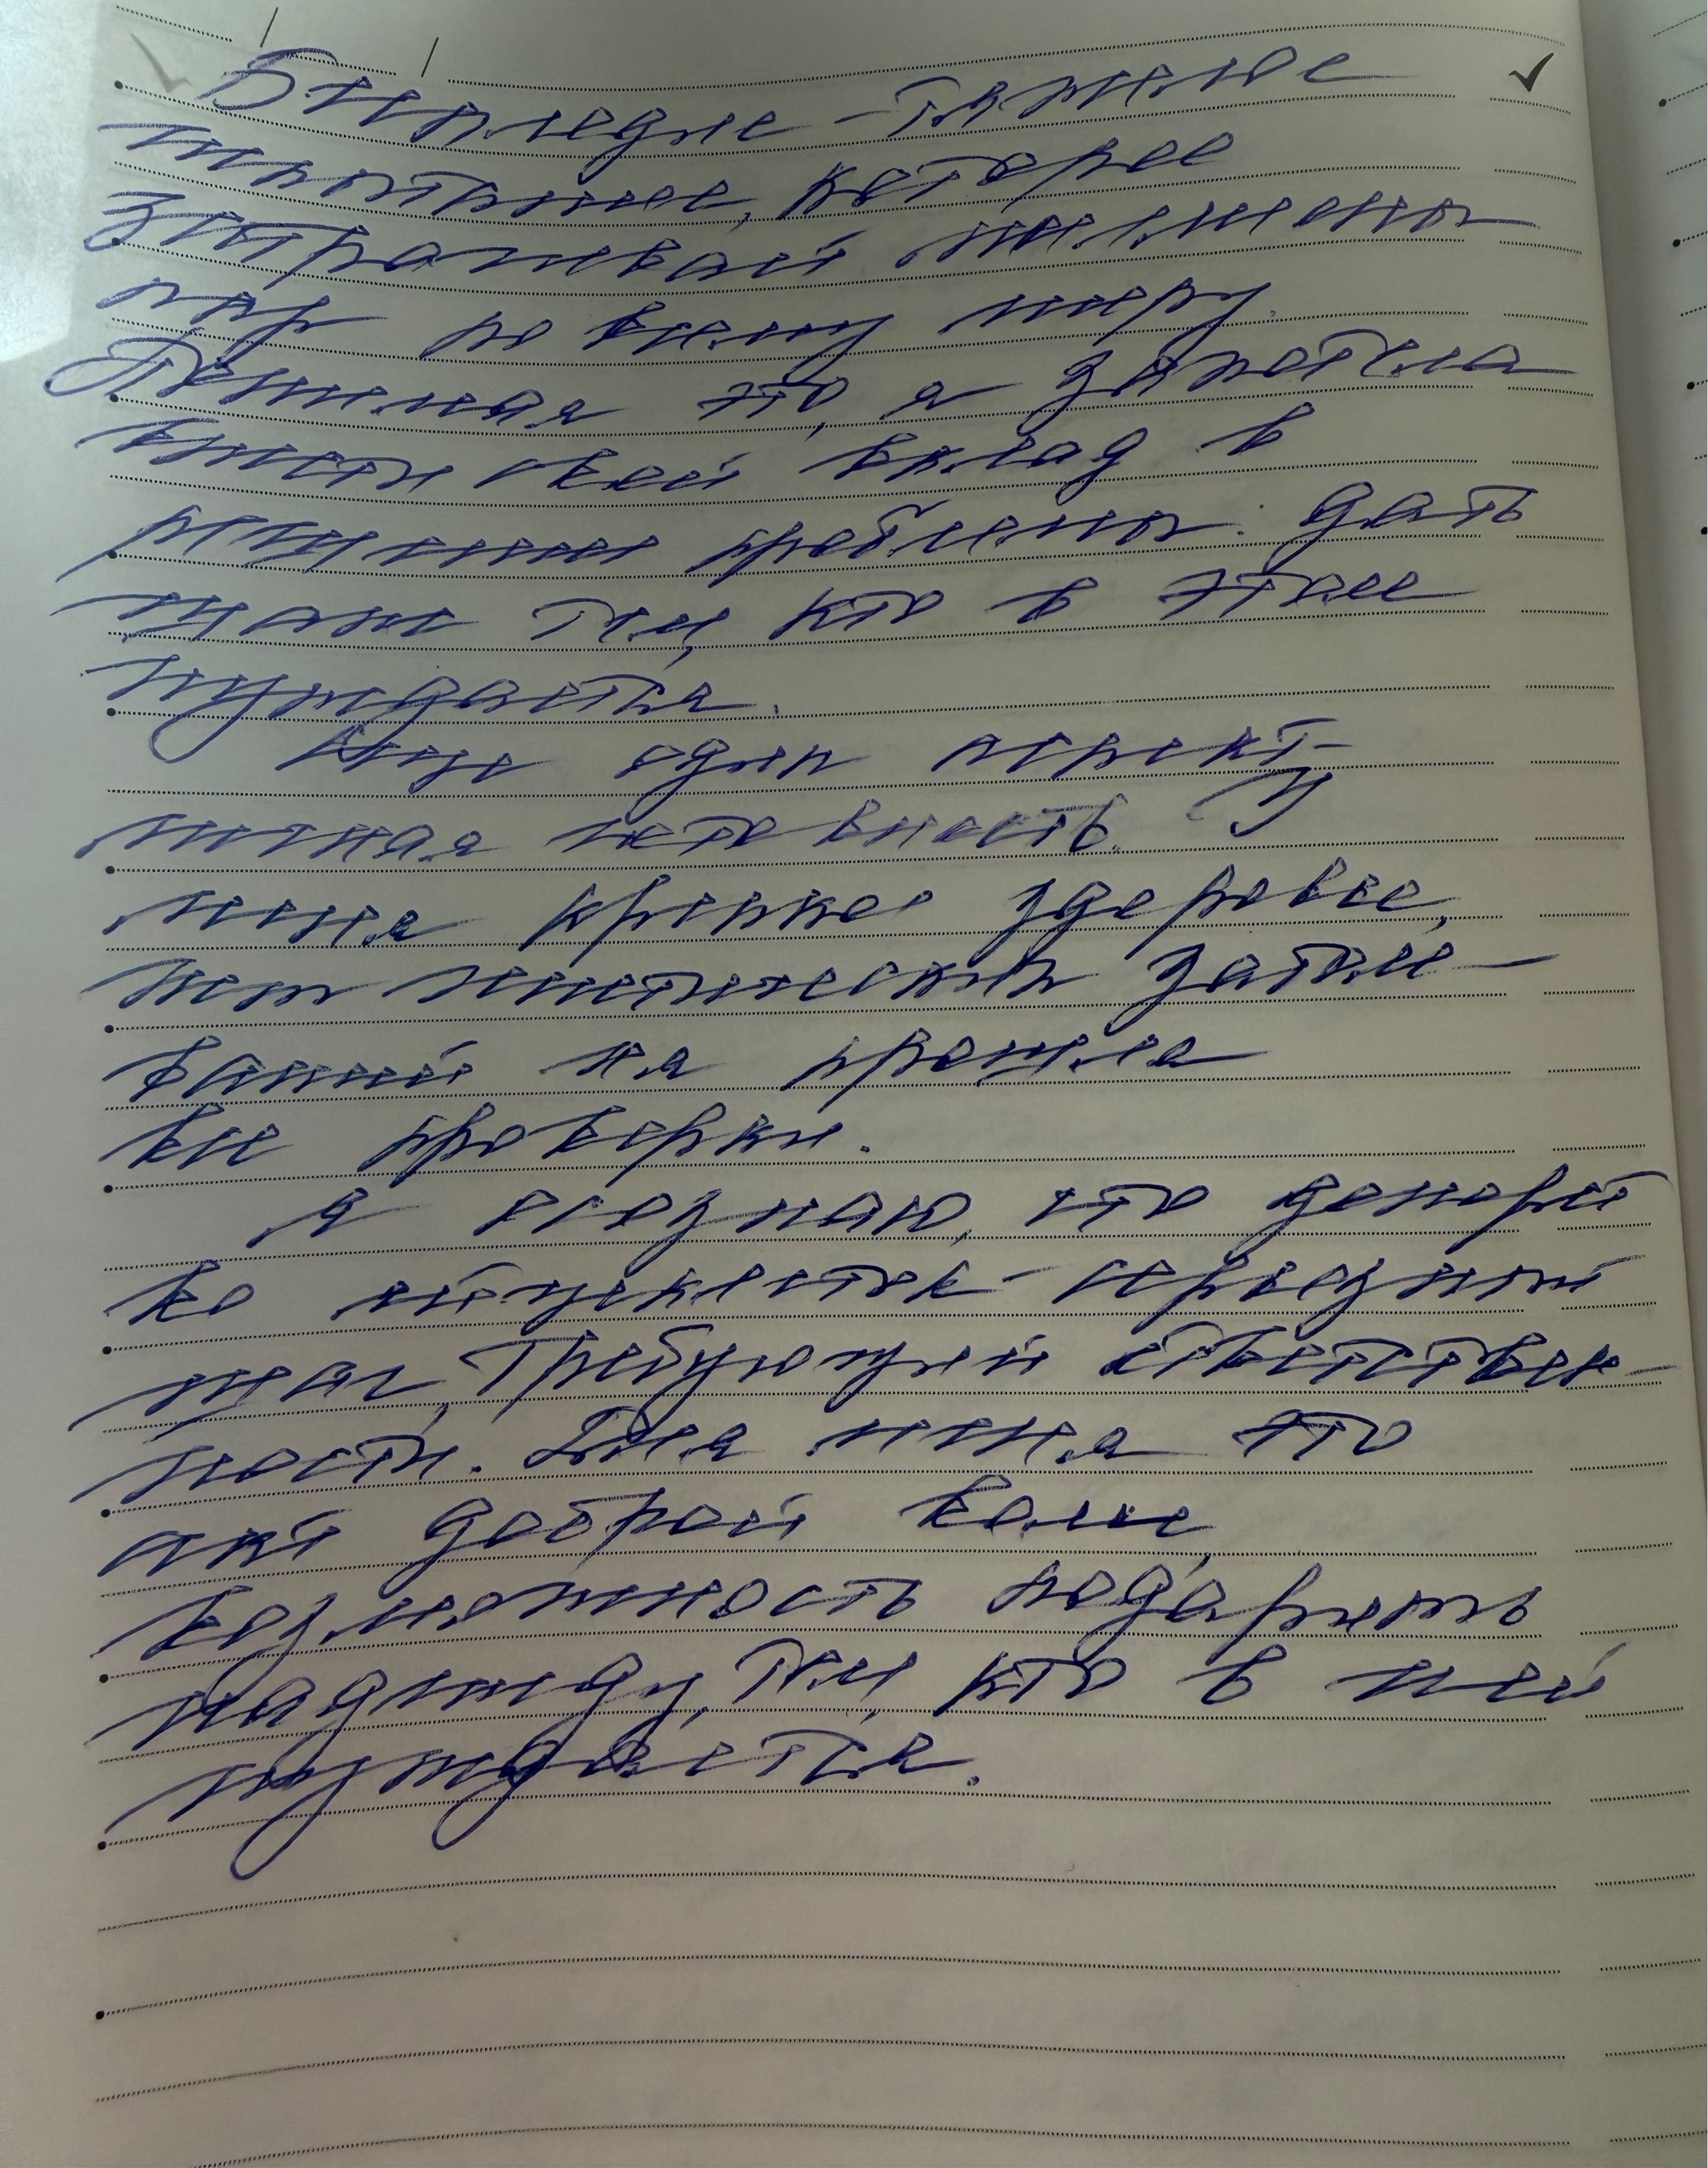 Бесплодие - тяжелое
испытание, которое
затрагивает миллионы
пар по всему миру.
Понимая это, я захотела
внести свой вклад в
решение проблемы: дать
шанс тем, кто в этом
нуждается.
Еще один аспект -
личная готовность. У
меня крепкое здоровье,
нет генетических заболе-
ваний и я прошла
все проверки.
Я осознаю, что донорст
во яйцеклеток - серьезный
шаг, требующий ответствен-
ности. Для меня это
акт доброй воли,
возможность подарить
надежду, тем, кто в ней
нуждается.